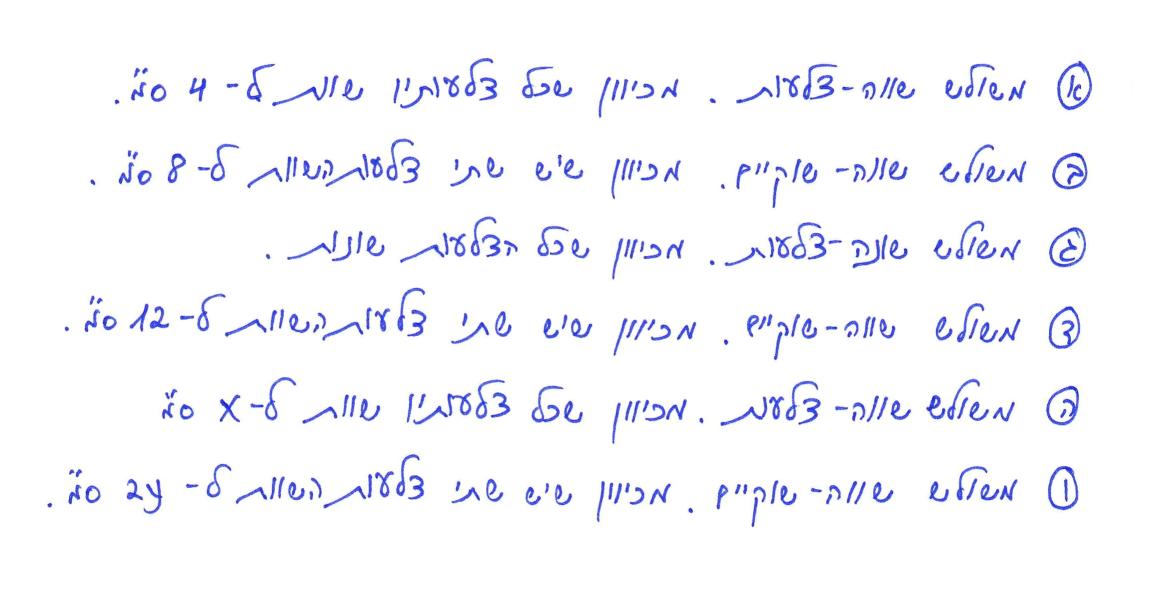 א משולש שווה-צלעות. מכיוון שכל צלעותיו שוות ל- 4 ס"מ.
ב משולש שווה-שוקיים. מכיוון שיש שתי צלעות השוות ל- 8 ס"מ.
ג משולש שונה-צלעות. מכיוון שכל הצלעות שונות.
ד משולש שווה-שוקיים. מכיוון שיש שתי צלעות השוות ל- 12 ס"מ.
ה משולש שווה-צלעות. מכיוון שכל צלעותיו שוות ל- x ס"מ
ו משולש שווה-שוקיים. מכיוון שיש שתי צלעות השוות ל- 2y ס"מ.